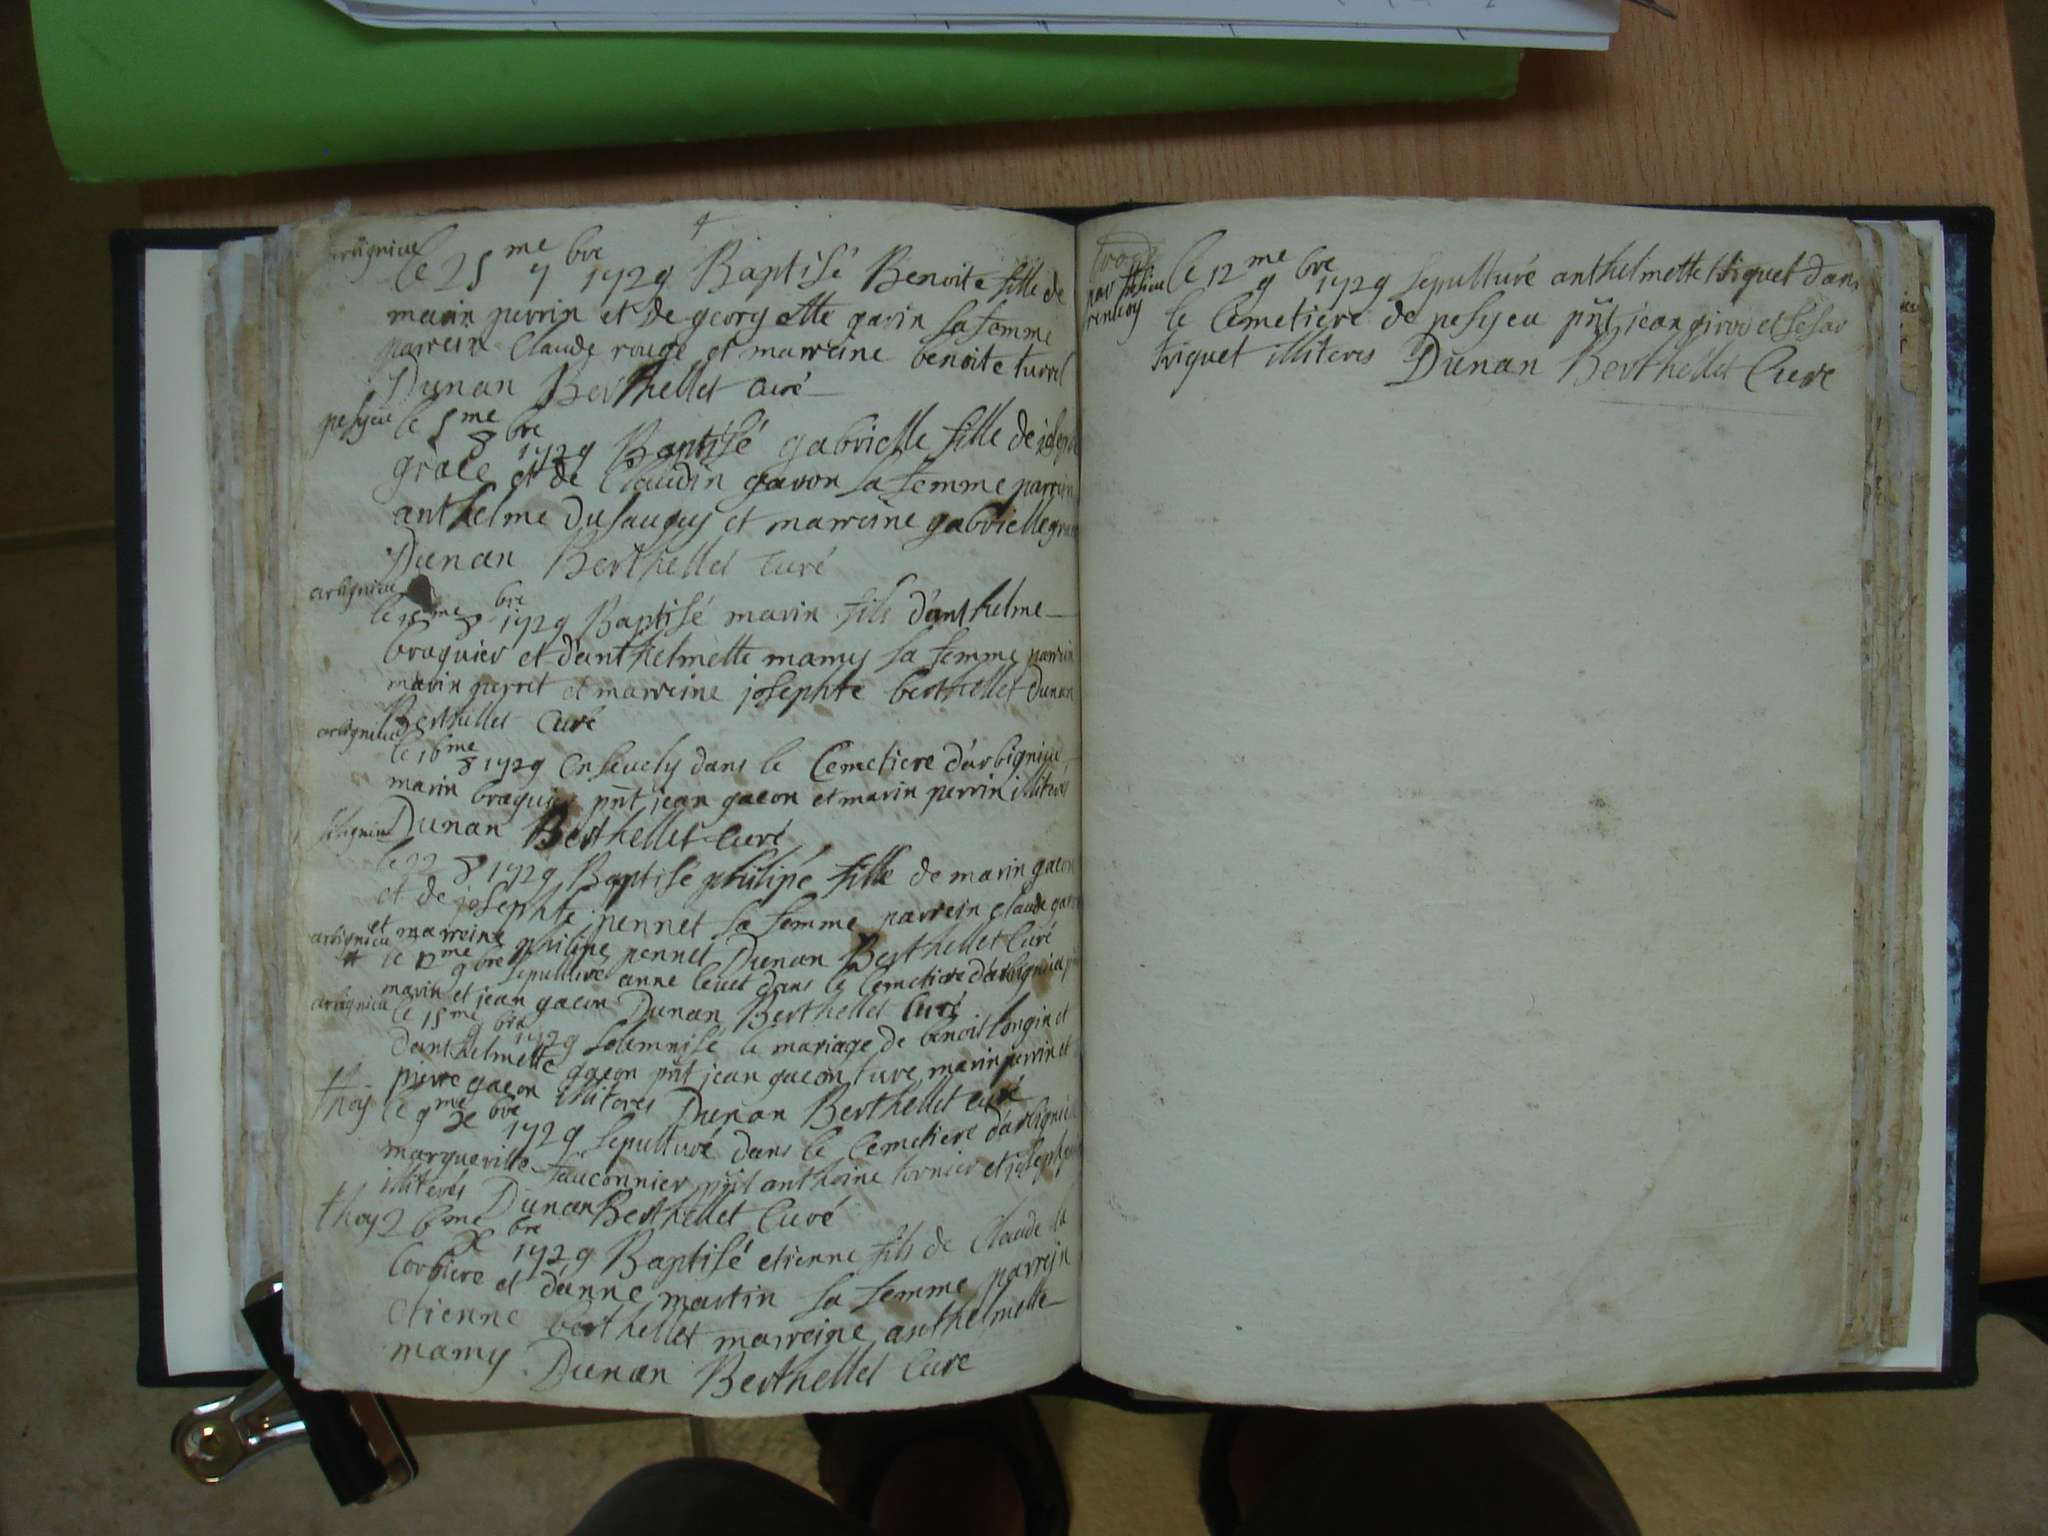 4
arbignieu le 25 me 7 bre 1729 Baptisé Benoite fille de
marin perrin et de georgette garin sa femme
parrein Claude rouge et marreine benoite turrel
Dunan Berthellet curé
pesyeu le 5 me 8 bre 1729 Baptisé gabrielle fille de joseph
grace et de Claudin gavon sa femme parrein
anthelme dusaugey et marreine gabrielle
Dunan Berthellet curé
arbignieu
le me 8 bre 1729 Baptisé marin fils d'anthelme
braquier et d'anthelmette mamy sa femme parrein
marin perret et marreine josephte berthellet Dunan
Berthellet Curé
arbignieu
le 16 me 8 1729 Ensevely dans le Cemetiere d'arbignieu
marin braquier pnt jean gacon et marin perrin illiterés
Dunan Berthellet Curé
le 22 8 1729 Baptisé philipé fille de marin gacon
et de josephte pennet sa femme parrein claude
et marreine philipe pennet Dunan Berthellet Curé
arbignieu le 12 me 9 bre sepulturé anne levet dans le Cemetiere d'arbignieu
marin et jean gacon Dunan Berthellet Curé
arbignieu le 15 me 9 bre 1729 solemnisé le mariage de benoit longin et
d'anthelmette gacon pnt jean gacon marin perrin et
pierre gacon illiteres Dunan Berthellet curé
thoy le 9 me Xe bre 1729 sepulturé dans le Cemetiere d'arbignieu
margueritte fauconnier pnt anthoine tornier et joseph
illiterés Dunan Berthellet Curé
thoy 26 me Xe bre 1729 Baptisé etienne fils de Claude la
Corbiere et d'anne martin sa femme parrein
etienne berthellet marreine anthelmette
mamy Dunan Berthellet Cure
le 12 me 9 bre 1729 sepulturé anthelmette triquet dans
le Cemetiere de pesyeu pnt jean girod et
triquet illiteres Dunan Berthellet Cure